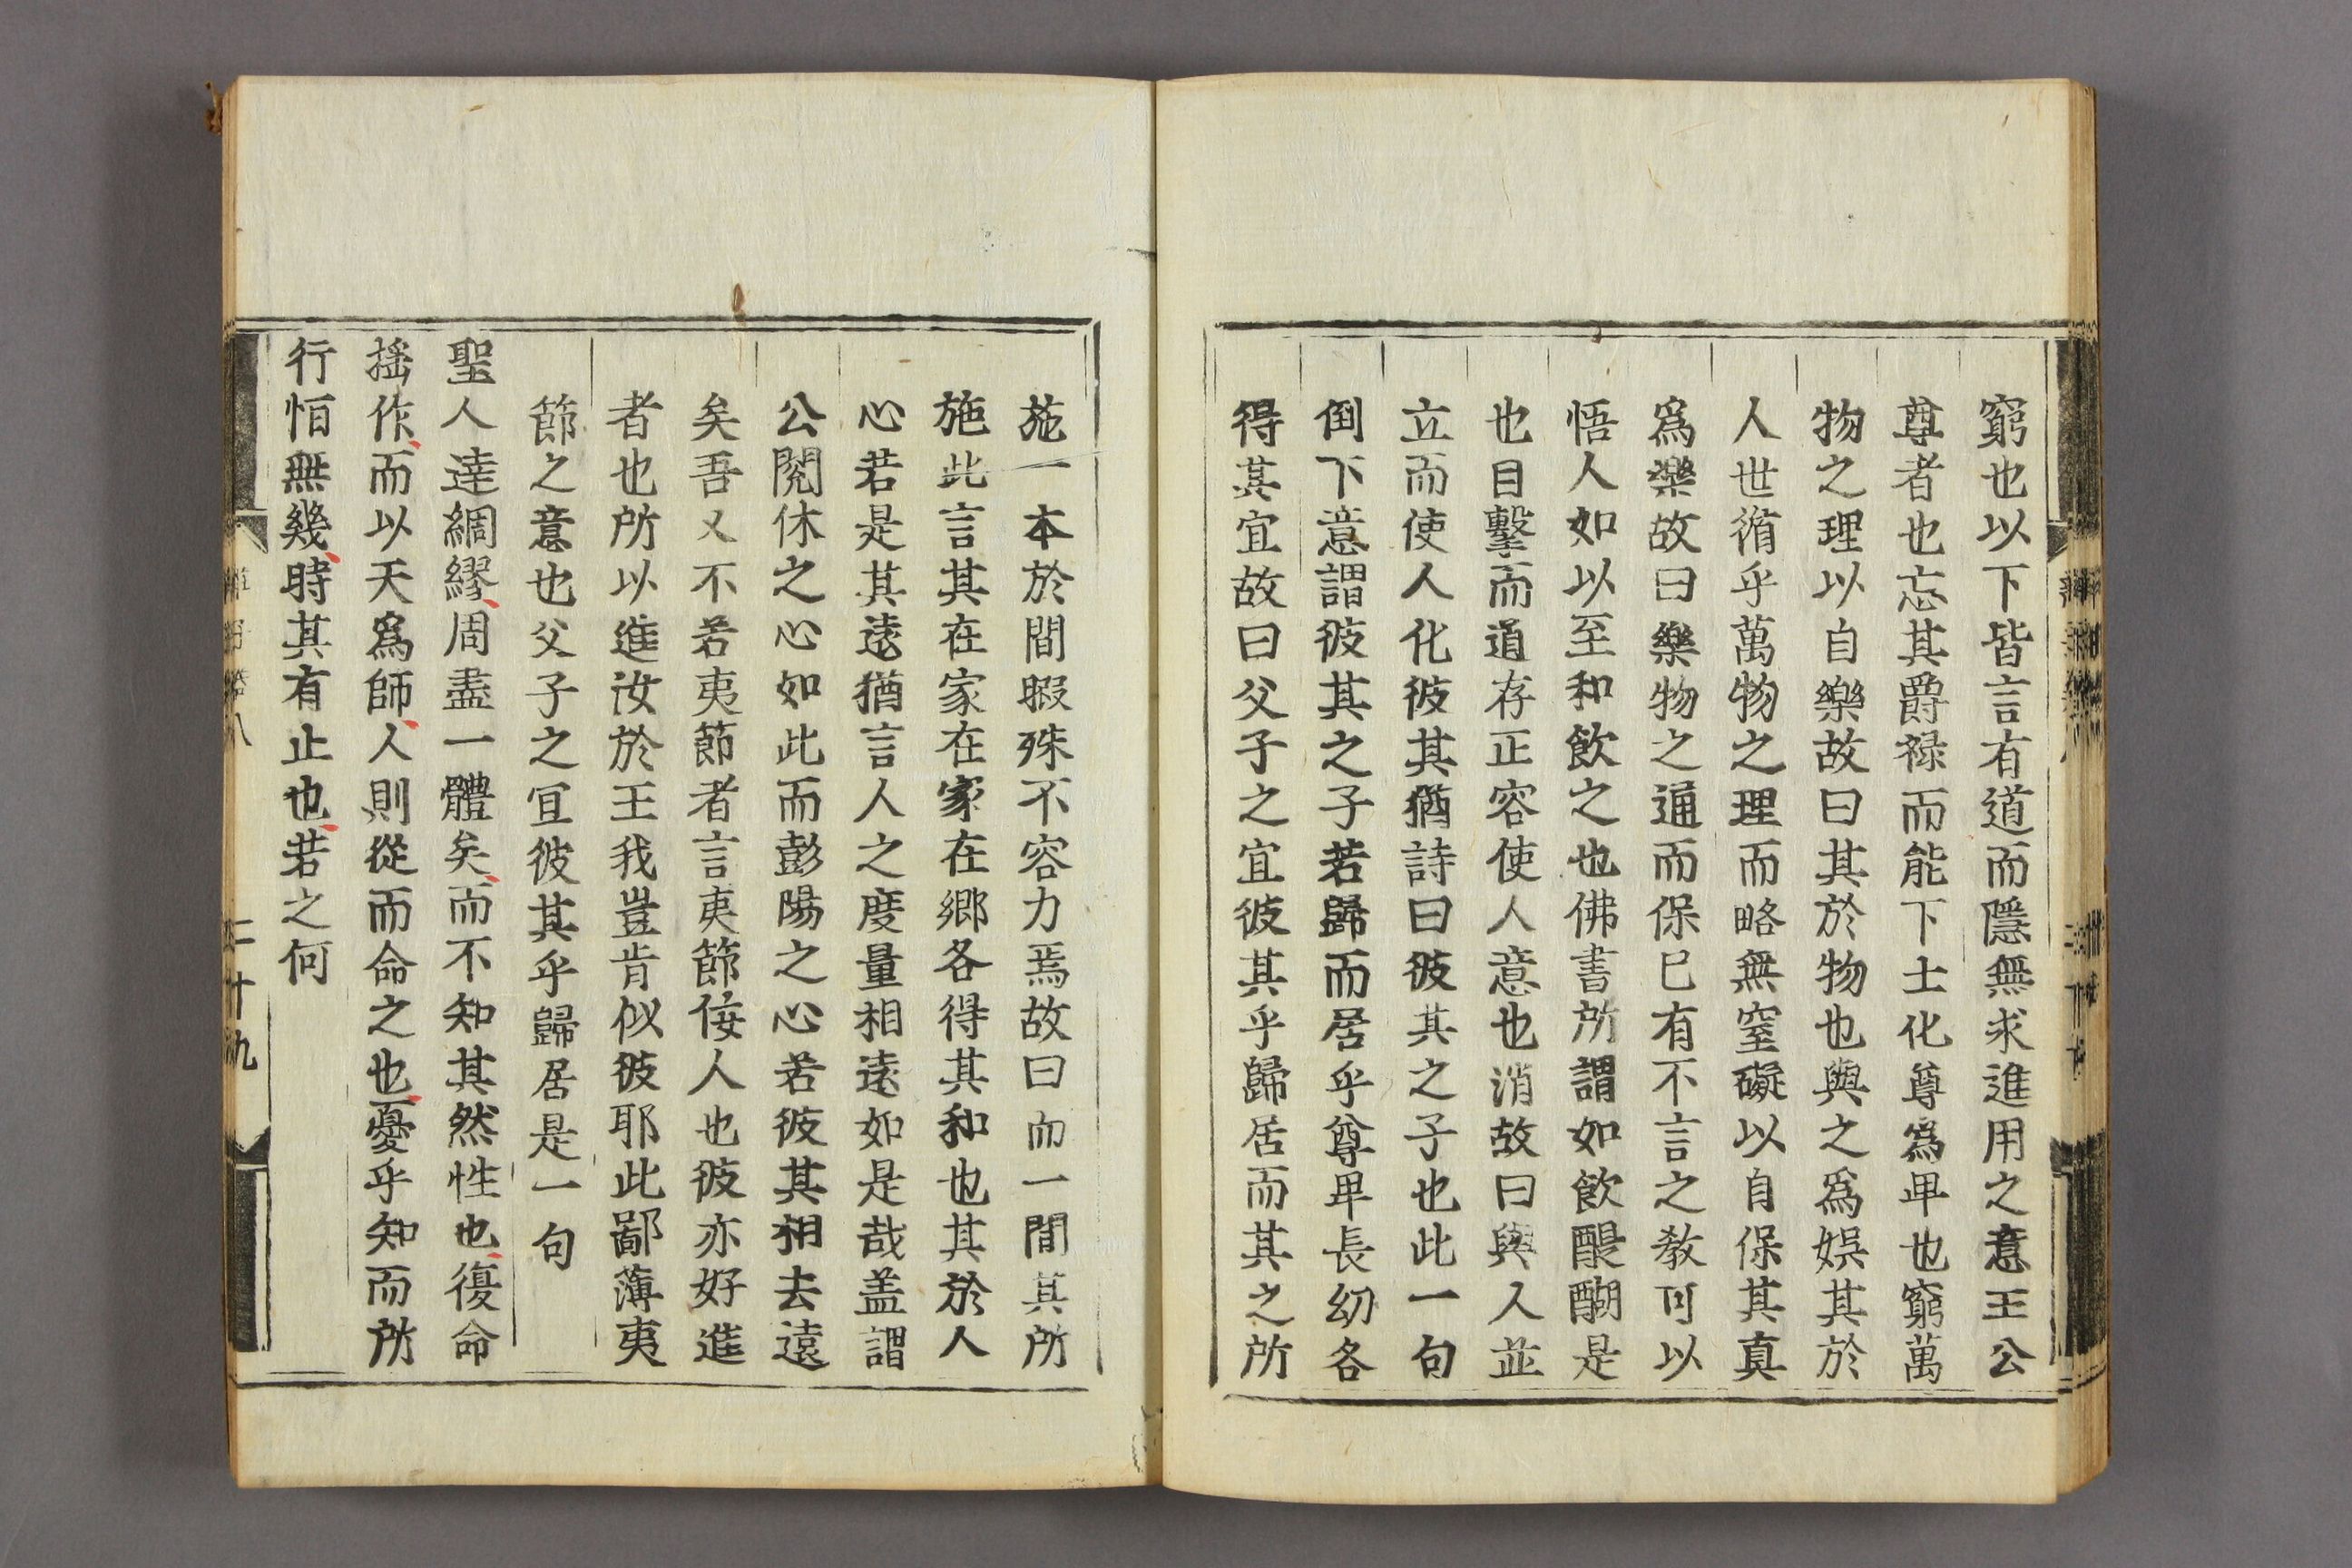 窮也以下皆言有道而隱無求進用之意王公
尊者也忘其爵祿而能下士化尊爲卑也窮萬
物之理以自樂故曰其於物也與之爲娯其於
人世循乎萬物之理而略無窒礙以自保其真
爲樂故曰樂物之通而保已有不言之教可以
悟人如以至和飲之也佛書所謂如飲醍醐是
也目擊而道存正容使人意也消故曰與人並
立而使人化彼其猶詩曰彼其之子也此一句
倒下意謂彼其之子若歸而居乎尊卑長幼各
得其宜故曰父子之宜彼其乎歸居而其之所
施一本於間暇殊不容力焉故曰而一間其所
施此言其在家在家在鄉各得其和也其於人
心若是其遠猶言人之度量相遠如是哉盖謂
公閱休之心如此而彭陽之心若彼其相去遠
矣吾又不若夷節者言夷節侫人也彼亦好進
者也所以進汝於王我豈肯似彼耶此鄙薄夷
節之意也父子之宜彼其乎歸居是一句
聖人達綢繆周盡一體矣而不知其然性也復命
搖作而以天爲師人則從而命之也憂乎知而所
行恒無幾時其有止也若之何
二十九